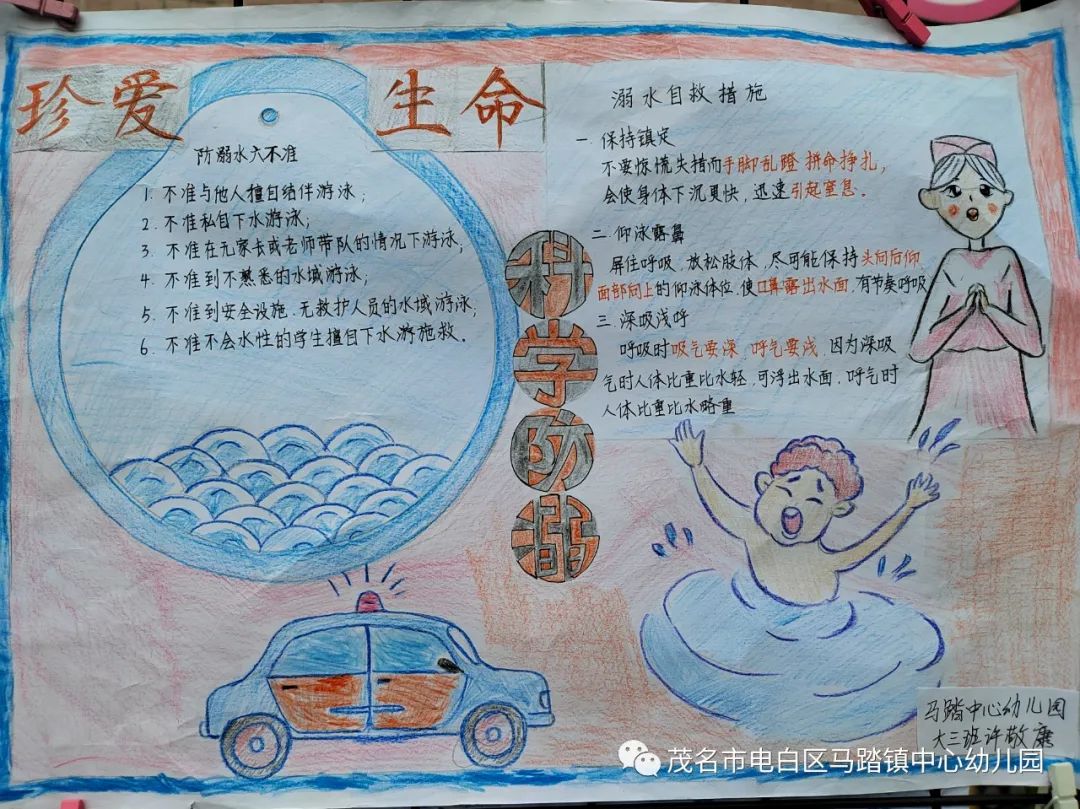 珍爱生命
防溺水六不准
1. 不准与他人擅自结伴游泳；
2. 不准私自下水游泳；
3. 不准在无家长或老师带队的情况下游泳；
4. 不准到不熟悉的水域游泳；
5. 不准到安全设施、无救护人员的水域游泳；
6. 不准不会水性的学生擅自下水游施救。
科学防溺
溺水自救措施
一 保持镇定
不要惊慌失措而手脚乱蹬 拼命挣扎，
会使身体下沉更快，迅速引起窒息。
二 仰泳露鼻
屏住呼吸，放松肢体，尽可能保持头向后仰
面部向上的仰泳体位，使口鼻露出水面，有节奏呼吸
三 深吸浅呼
呼吸时吸气要深，呼气要浅，因为深吸
气时人体比重比水轻，可浮出水面，呼气时
人体比重比水略重
马踏中心幼儿园
大三班许敬康
茂名市电白区马踏镇中心幼儿园